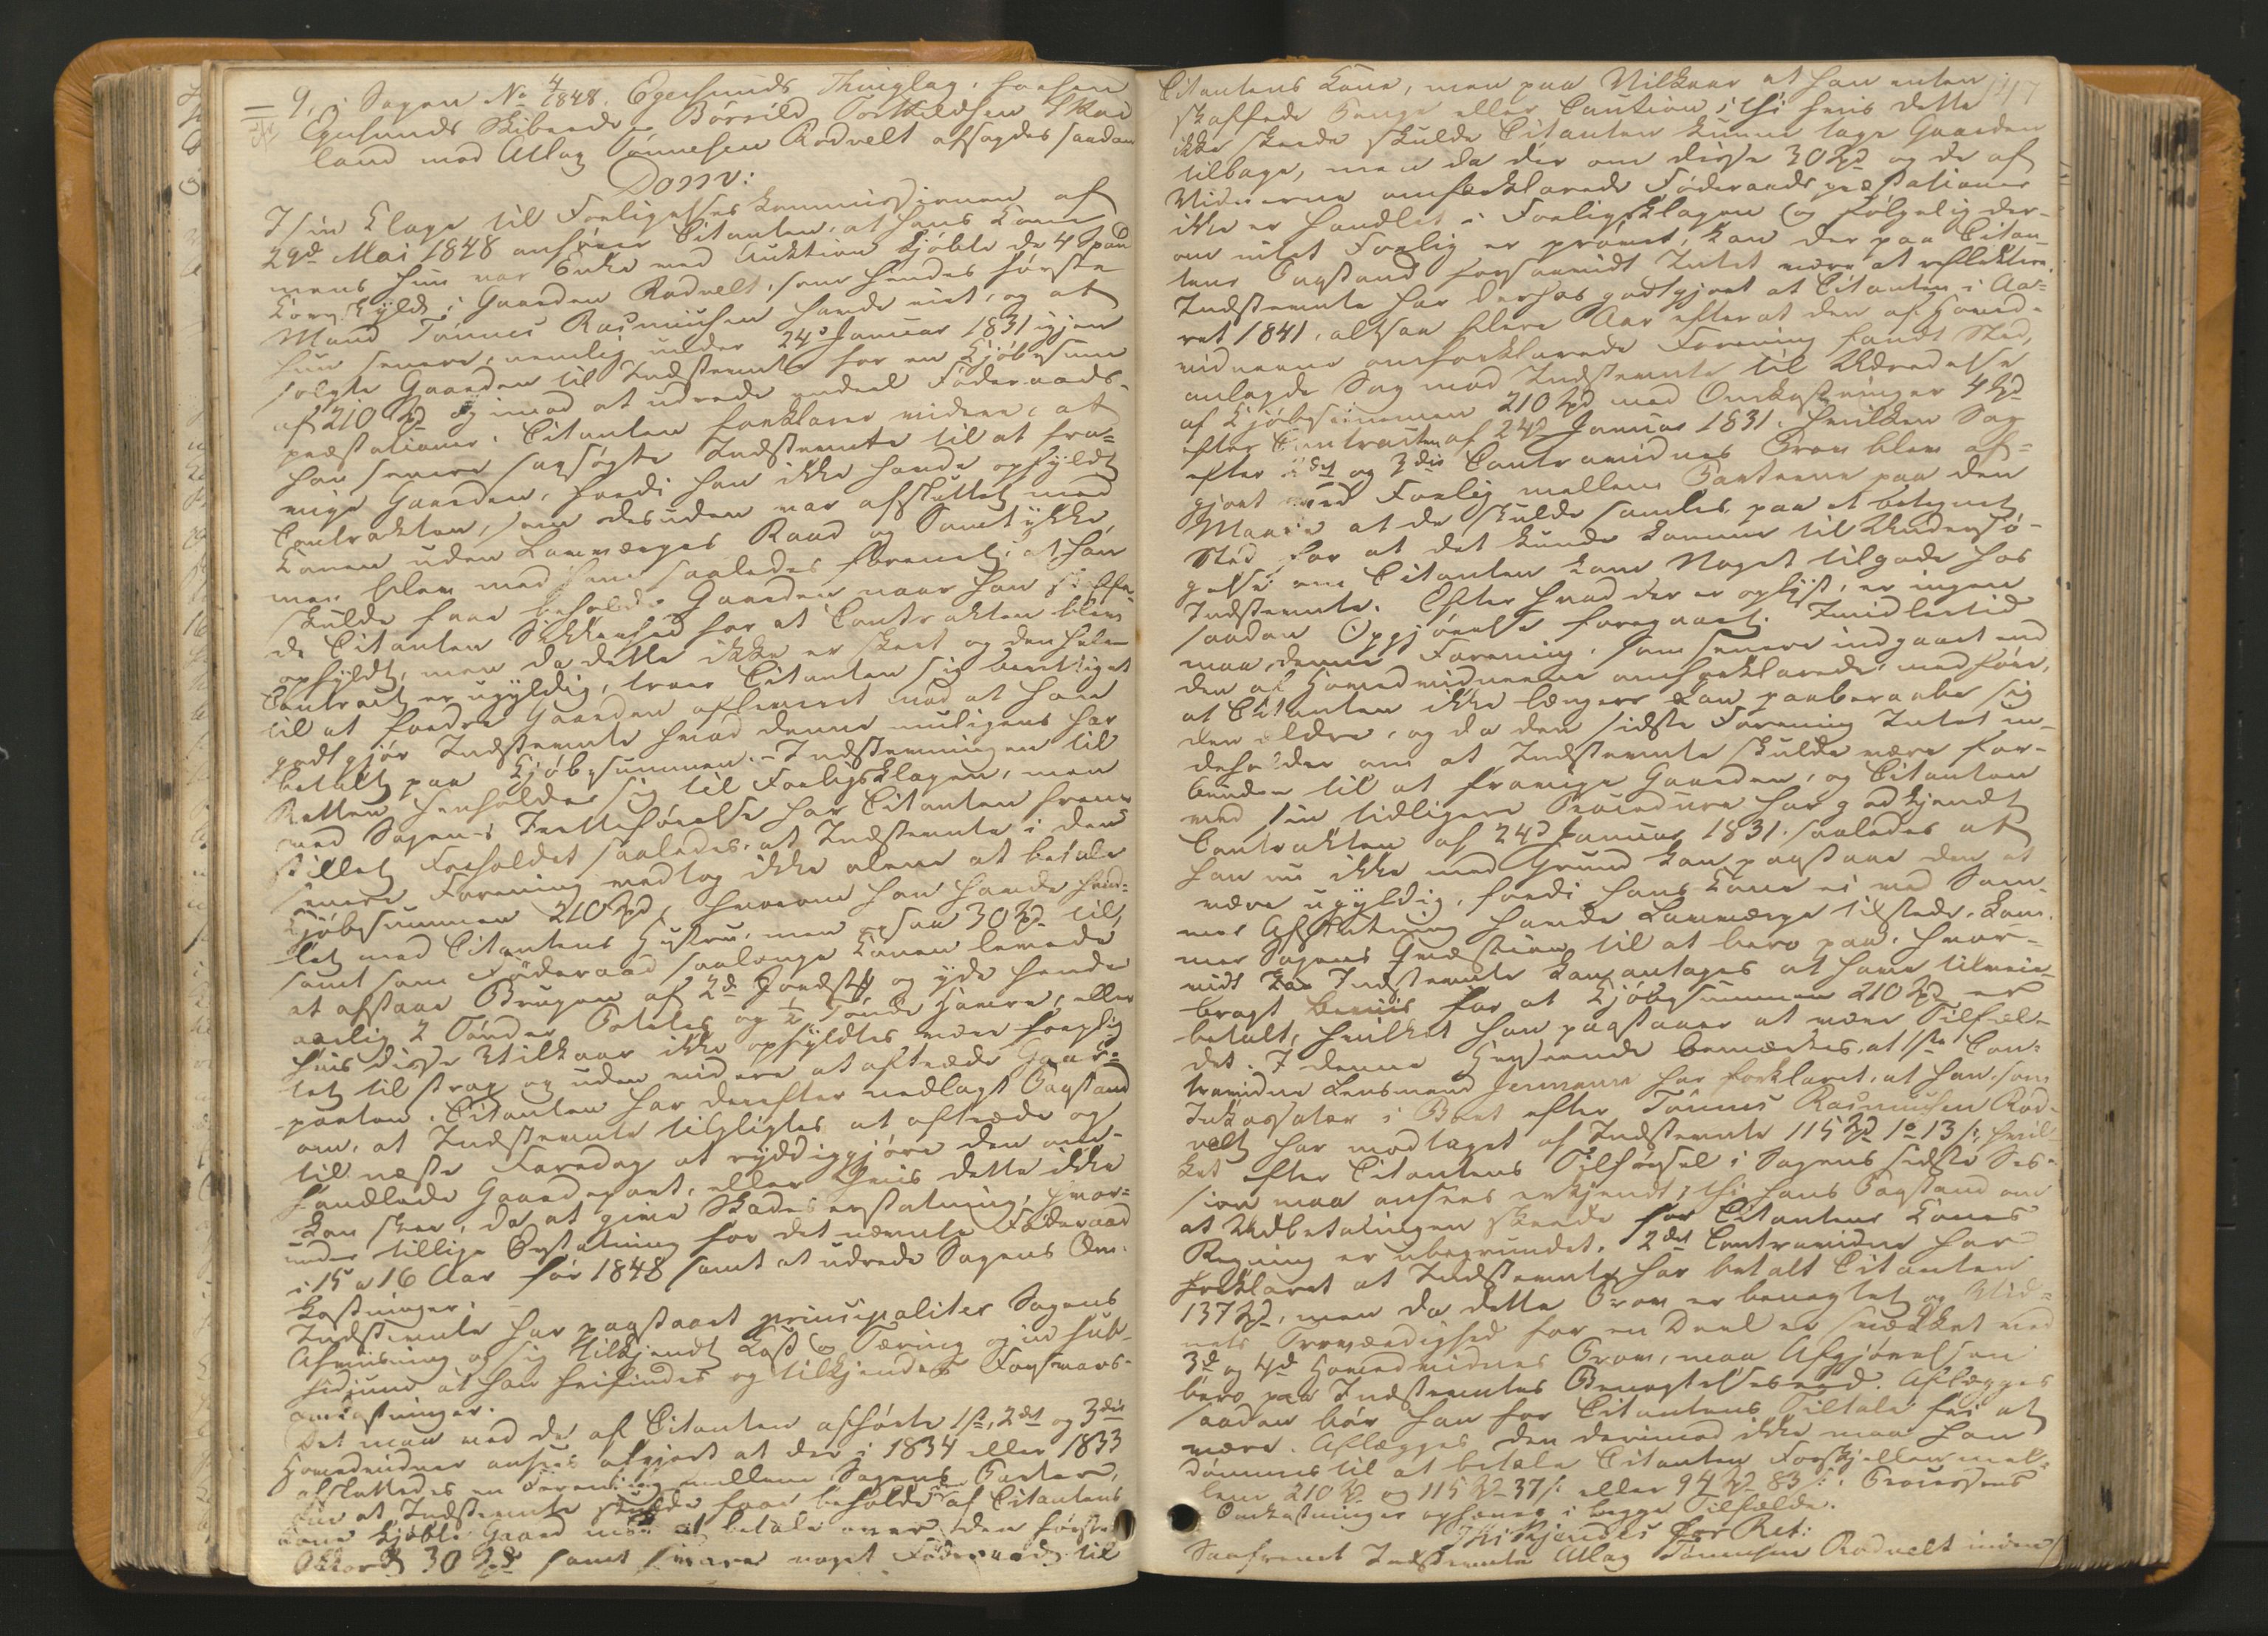 9, i Sagen No 4/1848. Egersunds Thinglag,
Egersunds Skibrede Børrild Torkildsen Skad
land mod Atlag Tønnesen Rodvelt afsagdes saadan
Dom:
I sin Klage til Forligelses kommissionen af
29d Mai 1848 anfører Citanten, at hans Kone
mens hun var Enke ved Auktion kjøbte de 4 Spand
Korn Skyld i Gaarden Rodvelt, som hendes første
Mand Tønnes Rasmussen havde eiet, og at
hun senere, nemlig under 24d Januar 1831 igjen
solgte Gaarden til Indstevnte for en Kjøbesum
af 210 Spd og imod at udrede endeel Føderaads-
præstationer. Citanten forklarer videre, at
han senere sagsøgte Indstevnte til at fra-
vige Gaarden, fordi han ikke havde opfyldt
Contrakten, som desuden var afsluttet med
Konen uden Lauværges Raad og Samtykke,
men blev med ham saaledes forenet, at han
skulde faae beholde Gaarden naar han skaffe-
de Citanten Sikkerhed for at Contrakten blev
opfyldt, men da dette ikke er skeet og den hele
Contract er ugyldig, troer Citanten sig berettiget
til at fordre Gaarden afleveret mod at han
godtgjør Indstevnte hvad denne muligens har
betalt paa Kjøbesummen. - Indstevningen til
Retten henholder sig til Forligsklagen, men
ved Sagens Foretagelse har Citanten frem
stillet Forholdet saaledes, at Indstevnte i den
senere Forening vedtog ikke alene at betale
Kjøbesummen 210 Spd, hvorom han havde hand-
let med Citantens Hustru, men ogsaa 30 Spd til,
samt som Føderaad saalænge Konen levede
at afstaae Brugen af 2de Jordstkr og yde hende
aarlig 2 Tønder Poteter og ½ Tønde Havre, eller
hvis disse Vilkaar ikke opfyldtes være forplig
tet til strax og uden videre at aftræde Gaar-
parten. Citanten har derefter nedlagt Paastand
om, at Indstevnte tilpligtes at aftræde og
til næste Faredag at ryddiggjøre den om-
handlede Gaardepart, eller hvis dette ikke
kan skee, da at give Skadeserstatning, hvor-
under tillige Erstatning for det nævnte Føderaad
i 15 a 16 Aar før 1848 samt at udrede Sagens Om-
kostninger.
Indstevnte har paastaaet principaliter Sagens
Afviisning og sig tilkjendt Kost & Tæring og in sub-
sidium at han frifindes og tilkjendes Forsvars-
omkostninger.
Det maa ved de af Citanten afhørte 1ste, 2det og 3die
Hovedvidner ansees afgjort at der i 1834 eller 1833
afsluttedes en Forening mellem Sagens Parter,
om at Indstevnte skulde faae beholde den af Citantens
Kone kjøbte Gaard mod at betale over den første
Akkord 30 Spd samt svare noget Føderaad til
Citantens Kone, men paa Vilkaar at han enten
skaffede Penge eller Caution, thi hvis dette
ikke skeede skulde Citanten kunne tage Gaarden
tilbage, men da der om disse 30 Spd og de af
Vidnerne omforklarede Føderaads præstationer
ikke er handlet i Forligsklagen og følgelig der-
om intet Forlig er prøvet, kan der paa Citan-
tens Paastand forsaavidt Intet være at reflektere.
Indstevnte har derhos godtgjort at Citanten i Aa-
ret 1841, altsaa flere Aar efterat den af Hoved-
vidnerne omforklarede Forening fandt Sted,
anlagde Sag mod Indstevnte til Udredelse
af Kjøbesummen 210 Spd med Omkostninger 4 Spd
efter Contracten af 24d Januar 1831. hvilken Sag
efter 2det og 3die Contravidnes Prov blev af-
gjort ved Forlig mellem Parterne paa den
Maade at de skulde samles paa et betegnet
Sted for at det kunde komme til Undersø-
gelse om Citanten kom Noget tilgode hos
Indstevnte. Efter hvad der er oplyst, er ingen
saadan Opgjørelse foregaaet. Imidlertid
maa denne Forening, som senere indgaaet end
den af Hovedvidnerne omforklarede, medføre,
at Citanten ikke længere kan paaberaabe sig
den ældre, og da den sidste Forening Intet in-
deholder om at Indstevnte skulde være for-
bunden til at fravige Gaarden, og Citanten
ved sin tidligere Procedure har godkjendt
Contrakten af 24d Januar 1831. saaledes at
han nu ikke med Grund kan paastaae den at
være ugyldig, fordi hans Kone ei ved Sam-
mes Afslutning havde Lauværge tilstede. Kom-
mer Sagens Qvæstion til at bero paa, hvor-
vidt Indstevnte kan antages at have tilveie-
bragt Beviis for at Kjøbesummen 210 Spd er
betalt, hvilket han paastaaer at være Tilfæl-
det. I denne Henseende bemærkes, at 1ste Con-
travidne Lensmand Jermann har forklaret, at han, som
Inkassator i Boet efter Tønnes Rasmussen Rod-
velt har modtaget af Indstevnte 115 Spd 1o 13 s, hvil-
ket efter Citantens Tilførsel i Sagens sidste Ses-
sion maa ansees erkjendt, thi hans Paastand om
at Udbetalingen skeede for Citantens Kones
Regning er ubegrundet. 2det Contravidne har
forklaret at Indstevnte har betalt Citanten
137 Spd, men da dette Prov er benegtet og Vid-
nets Troværdighed for en Deel er svækket ved
3d og 4d Hovedvidnes Prov, maa Afgjørelsen
bero paa Indstevntes Benegtelseseed. Aflægges
saadan bør han for Citantens Tiltale fri at
være. Aflægges den derimod ikke maa han
dømmes til at betale Citanten Forskjellen mel-
lem 210 Spd og 115 Spd 37 s: eller 94 Spd 83 s:. Processens
Omkostninger ophæves i begge Tilfælde.
Thi kjendes for Ret:
Saafremt Indstevnte Atlag Tønnesen Rodvelt inden